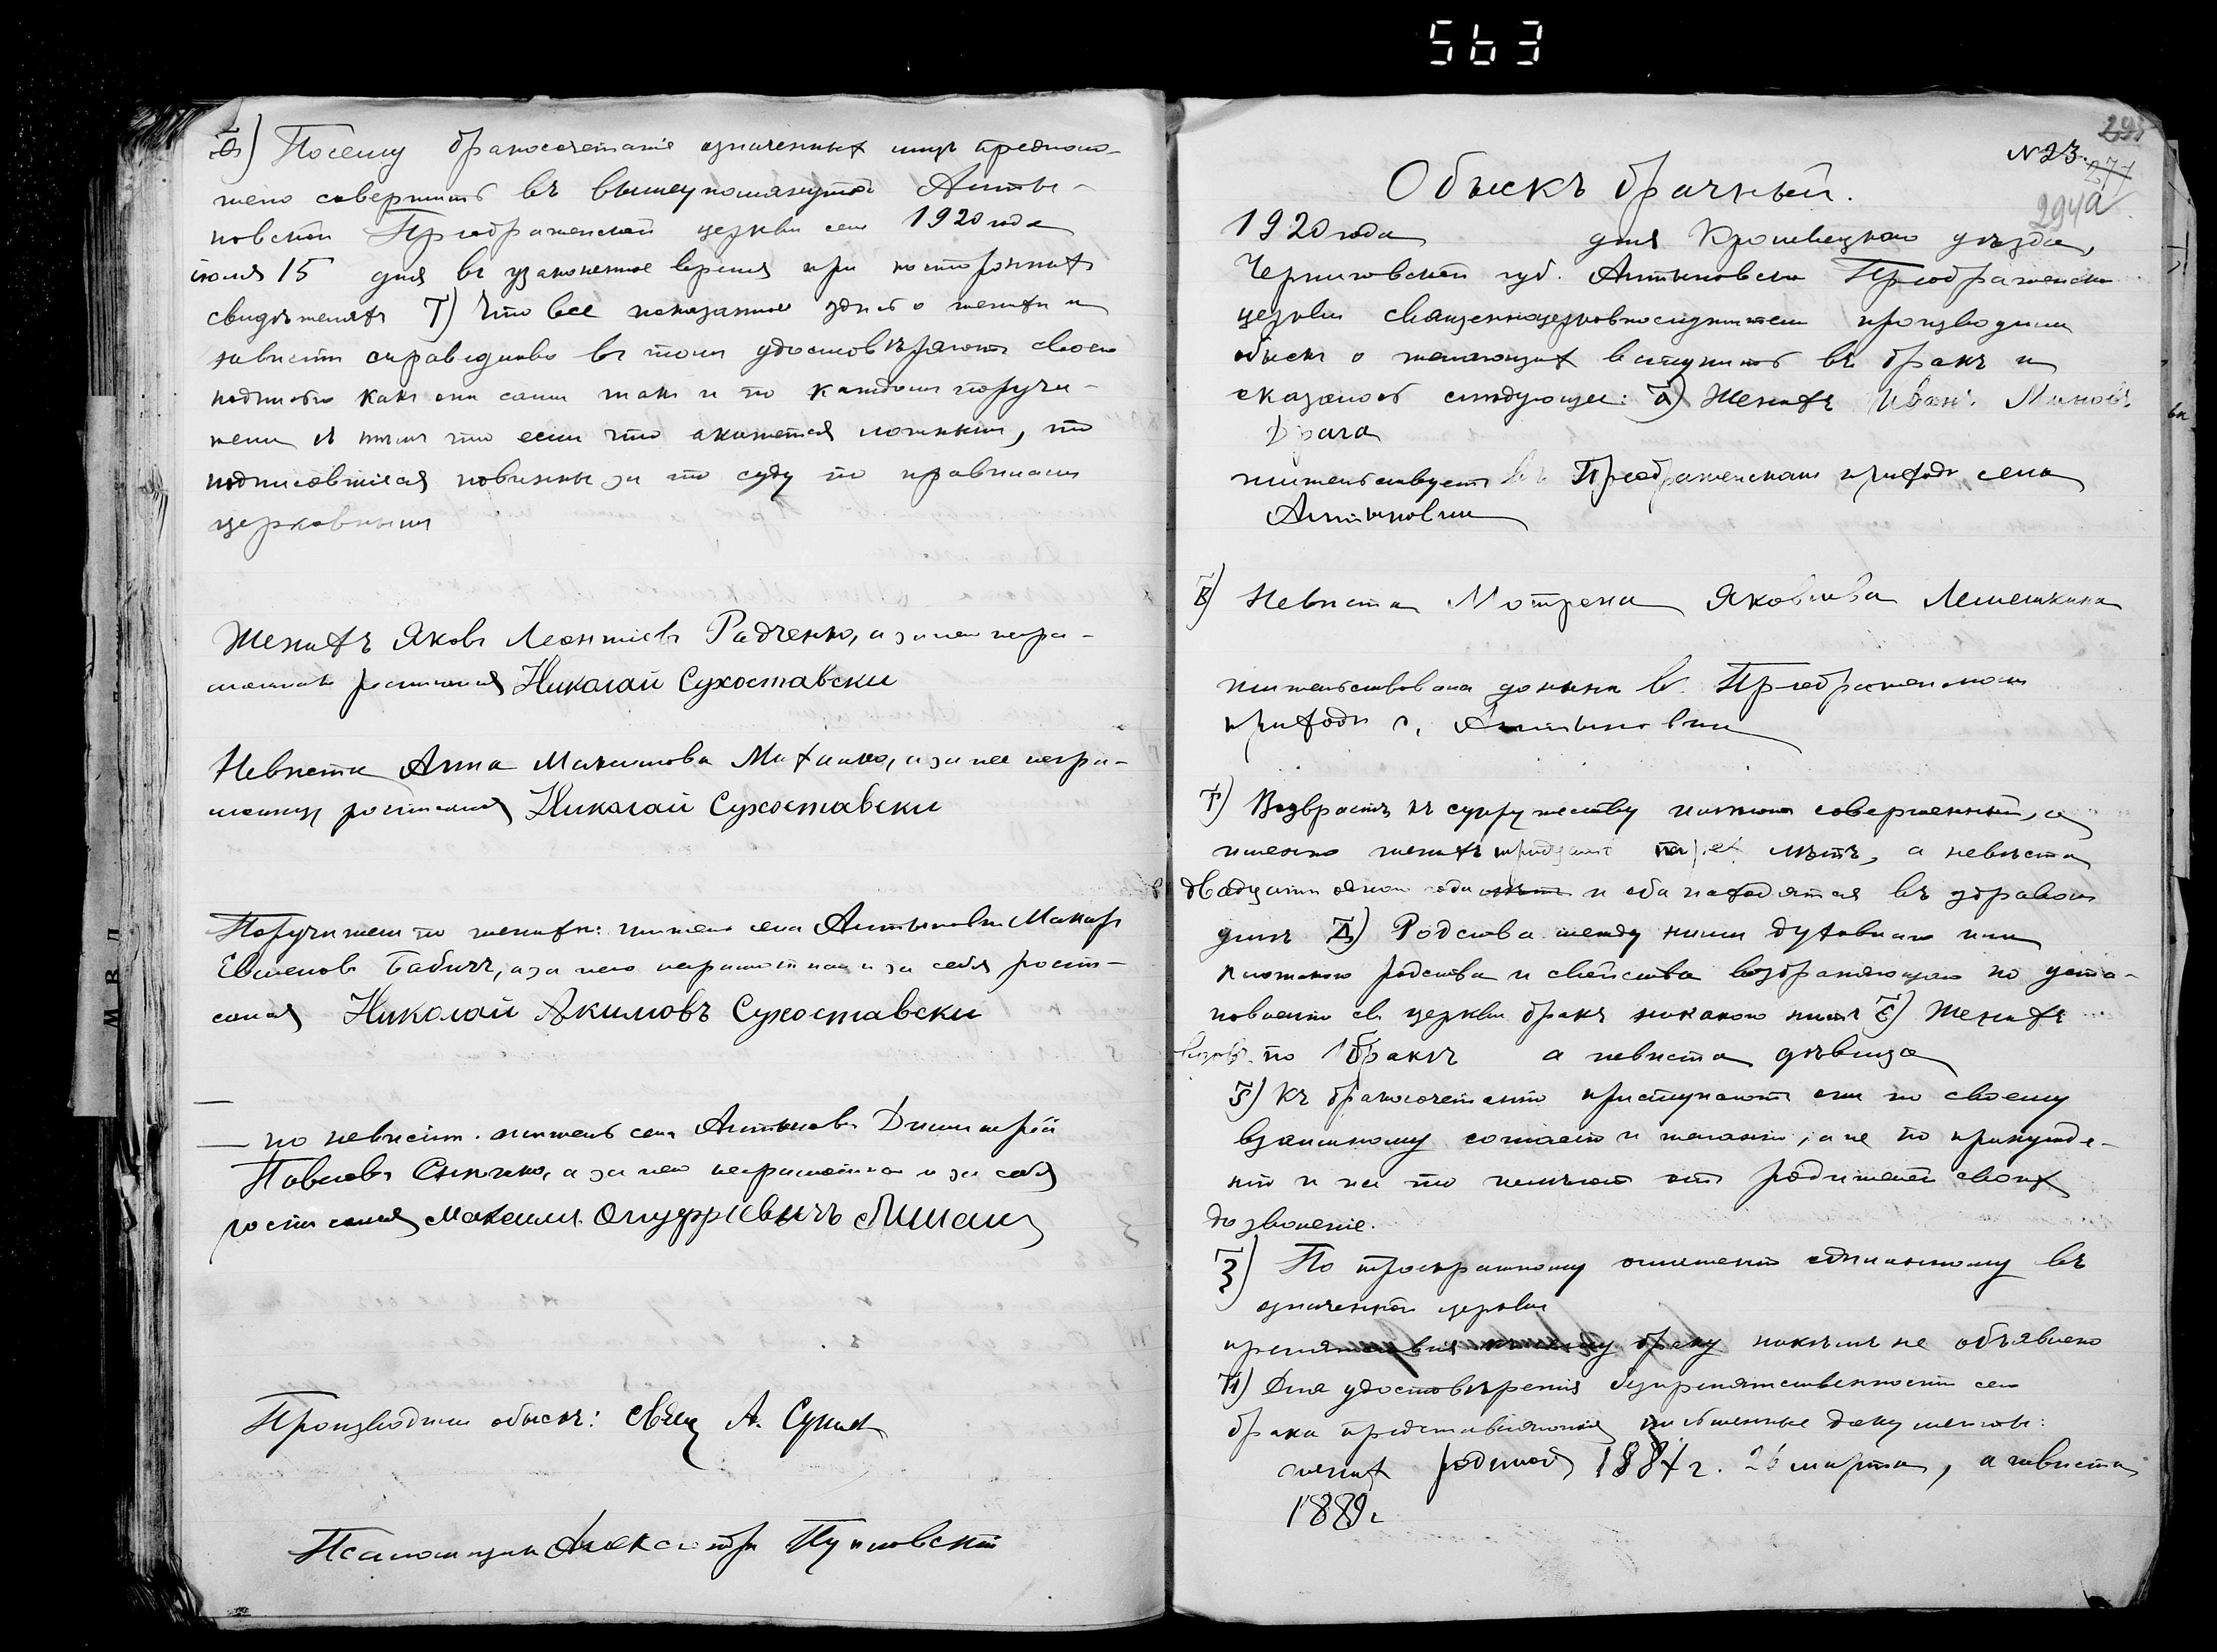 563
Ѳ) Посему бракосочетаніе означенныхъ лицъ предполо-
жено совершить въ вышеупомянутой Алты-
новской Преображенской церкви сего 1920 года
іюля 15 дня въ узаконенное время при постороннихъ
свидѣтеляхъ І) Что все показанное здѣсь о женихѣ и
невѣстѣ справедливо въ томъ удостовѣряютъ своею
подписью какъ они сами такъ и по каждомъ поручи-
тели съ тѣмъ что если что окажется ложнымъ, то
подписавшіеся повинны за то суду по правиламъ
церковнымъ
Женихъ Яковъ Леонтіевъ Радченко, а за него негра-
мотнаго росписался Николай Сухоставски
Невѣста Анна Максимова Михаленко, а за нее негра-
мотную росписался Николай Сухоставски
Поручители по женихѣ: житель села Алтыновки Макаръ
Евменовъ Бабичъ, а за него неграмотнаго и за себя роспи-
сался Николай Акимовъ Сухоставски
— по невѣстѣ житель села Алтыновки Дмитрій
Павловъ, а за него неграмотнаго и за себя
росписался Максимъ Онуфріевичъ
Производили обыскъ: Свящ А.
Псаломщикъ Александръ
295
N 23.
277
294а
Обыскъ брачный.
1920 года дня Кролевецкаго уѣзда,
Черниговской губ. Алтыновской Преображенской
церкви священноцерковнослужители производили
обыскъ о желающихъ вступить въ бракъ и
оказалось слѣдующее: а) Женихъ Иванъ
Драга
жительствуетъ въ Преображенскомъ приходѣ села
Алтыновки
В) Невѣста Мотрона Яковлева Лемешкина
жительствовала донынѣ въ Преображенскомъ
приходѣ с. Алтыновки
Г) Возврастъ къ супружеству имѣютъ совершенный, а
именно женихъ тридцати трех лѣтъ, а невѣста
двадцати одного года лѣтъ и оба находятся въ здравомъ
умѣ Д) Родства между ними духовнаго или
плотскаго родства и свойства возбраняющаго по уста-
новленію св. церкви бракъ никакого нѣтъ Е) Женихъ
вдовъ по 1 бракѣ а невѣста дѣвица
Ѕ) Къ бракосочетанію приступаютъ они по своему
взаимному согласію и желанію, а не по принужде-
нію и на то имѣютъ отъ родителей своихъ
дозволеніе.
З) По троекратному оглашенію сдѣланному въ
означенной церкви
препятствія къ сему браку никѣмъ не объявлено
И) Для удостовѣренія безпрепятственности сего
брака представляются письменные документы:
женихъ родился 1887 г. 26 марта, а невѣста
1889 г